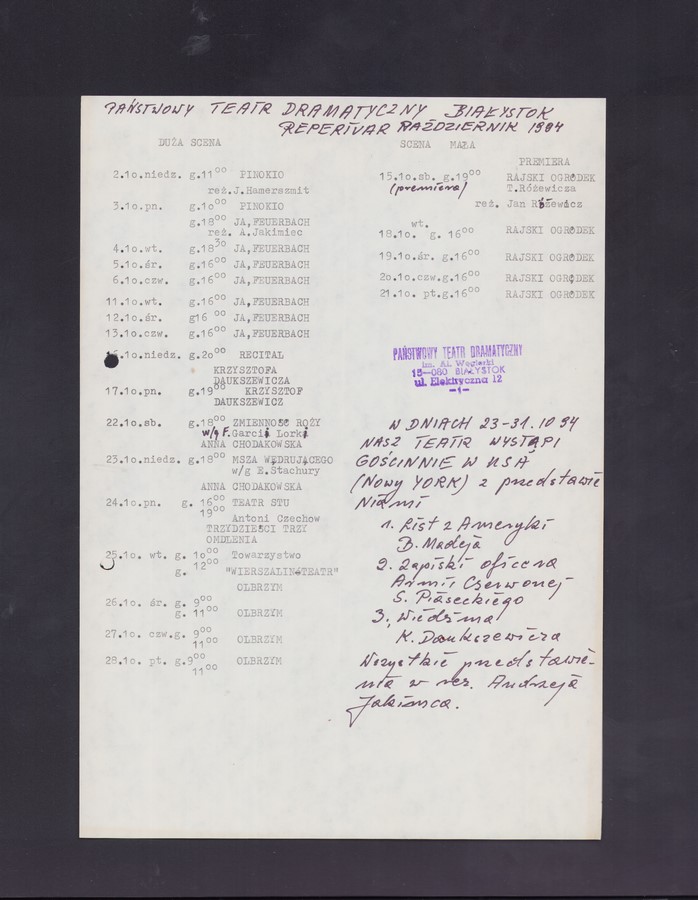 PAŃSTWOWY TEATR DRAMATYCZNY BIAŁYSTOK
REPERTUAR PAŹDZIERNIK 1994
DUŻA SCENA
2.1o.niedz. g.11⁰⁰ PINOKIO
reż.J.Hamerszmit
3.1o.pn. g.1o⁰⁰ PINOKIO
g.18⁰⁰ JA,FEUERBACH
reż. A.Jakimiec
4.1o.wt. g.18³⁰ JA,FEUERBACH
5.1o.śr. g.16⁰⁰ JA,FEUERBACH
6.1o.czw. g.16⁰⁰ JA,FEUERBACH
11.1o.wt. g.16⁰⁰ JA,FEUERBACH
12.1o.śr. g16 ⁰⁰ JA,FEUERBACH
13.1o.czw. g.16⁰⁰ JA,FEUERBACH
6.1o.niedz. g.2o⁰⁰ RECITAL
KRZYSZTOFA
DAUKSZEWICZA
17.1o.pn. g.19⁰⁰ KRZYSZTOF
DAUKSZEWICZ
22.1o.sb. g.18⁰⁰ ZMIENNOŚĆ RÓŻY
w/g F.Garcii Lorki
ANNA CHODAKOWSKA
23.1o.niedz. g.18⁰⁰ MSZA WĘDRUJĄCEGO
w/g E.Stachury
ANNA CHODAKOWSKA
24.1o.pn. g. 16⁰⁰ TEATR STU
19⁰⁰
Antoni Czechow
TRZYDZIEŚCI TRZY
OMDLENIA
25.1o. wt. g. 1o⁰⁰ Towarzystwo
g. 12⁰⁰ "WIERSZALIN-TEATR"
OLBRZYM
26.1o. śr. g. 9⁰⁰
g. 11⁰⁰ OLBRZYM
27.1o. czw.g. 9⁰⁰
11⁰⁰ OLBRZYM
28.1o. pt. g.9⁰⁰ OLBRZYM
11⁰⁰
SCENA MAŁA
PREMIERA
15.1o.sb. g.19⁰⁰ RAJSKI OGRÓDEK
(premiera) T.Różewicza
reż. Jan Różewicz
wt.
18.1o. g. 16⁰⁰ RAJSKI OGRÓDEK
19.1o.śr. g.16⁰⁰ RAJSKI OGRÓDEK
2o.1o.czw.g.16⁰⁰ RAJSKI OGRÓDEK
21.1o. pt.g.16⁰⁰ RAJSKI OGRÓDEK
PAŃSTWOWY TEATR DRAMATYCZNY
im. Al. Węgierki
15-080 BIAŁYSTOK
ul. Elektryczna 12
-1-
W DNIACH 23-31.10 94
NASZ TEATR WYSTĄPI
GOŚCINNIE W USA
(NOWY YORK) z przedstawie
niami
1. List z Ameryki
B. Madeja
2. Zapiski oficera
Armii Czerwonej
S. Piaseckiego
3. Wiedźma
K. Daukszewicza
Wszystkie przedstawie-
nia w reż. Andrzeja
Jakimca.